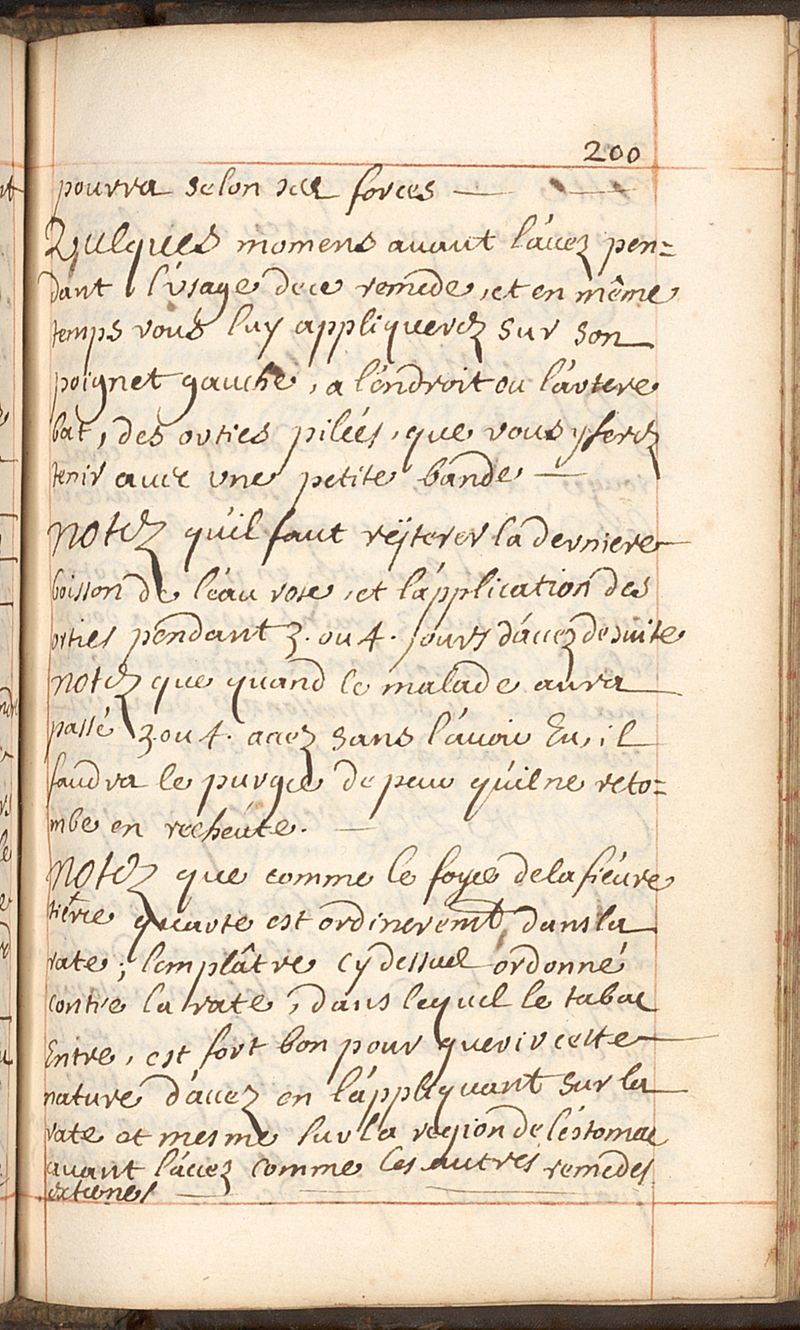 200
pourra selon ses forces
Quelques momens auant l'ácez pen=
dant l'usage de ce remede, et en même
temps vous luy appliquerez sur son
poignet gauche, a l'endroit ou l'artere
bat, des orties pileés, que vous y ferez
tenir auec une petite bande
notez qu'il faut reÿterer la derniere
boisson de l'eau rose, et l'application des
orties pendant 3. ou 4. jours d'ácez de suite
notez que quand le malade aura
passé 3. ou 4. acez sans l'auoir Eu, il
faudra le purger de peur qu'il ne reto=
mbe en recheúte.
notez que comme le foyer de la fiéure
tierce quarte est ordineremt dans la
rate; lemplâtre cy dessus ordonné
contre la rate, dans lequel le tabac
Entre, est fort bon pour guerir cette
nature d'ácez en l'áppliquant sur la
rate et mesme sur la region de l'éstomac
auant l'ácez comme les autres remedes
externes